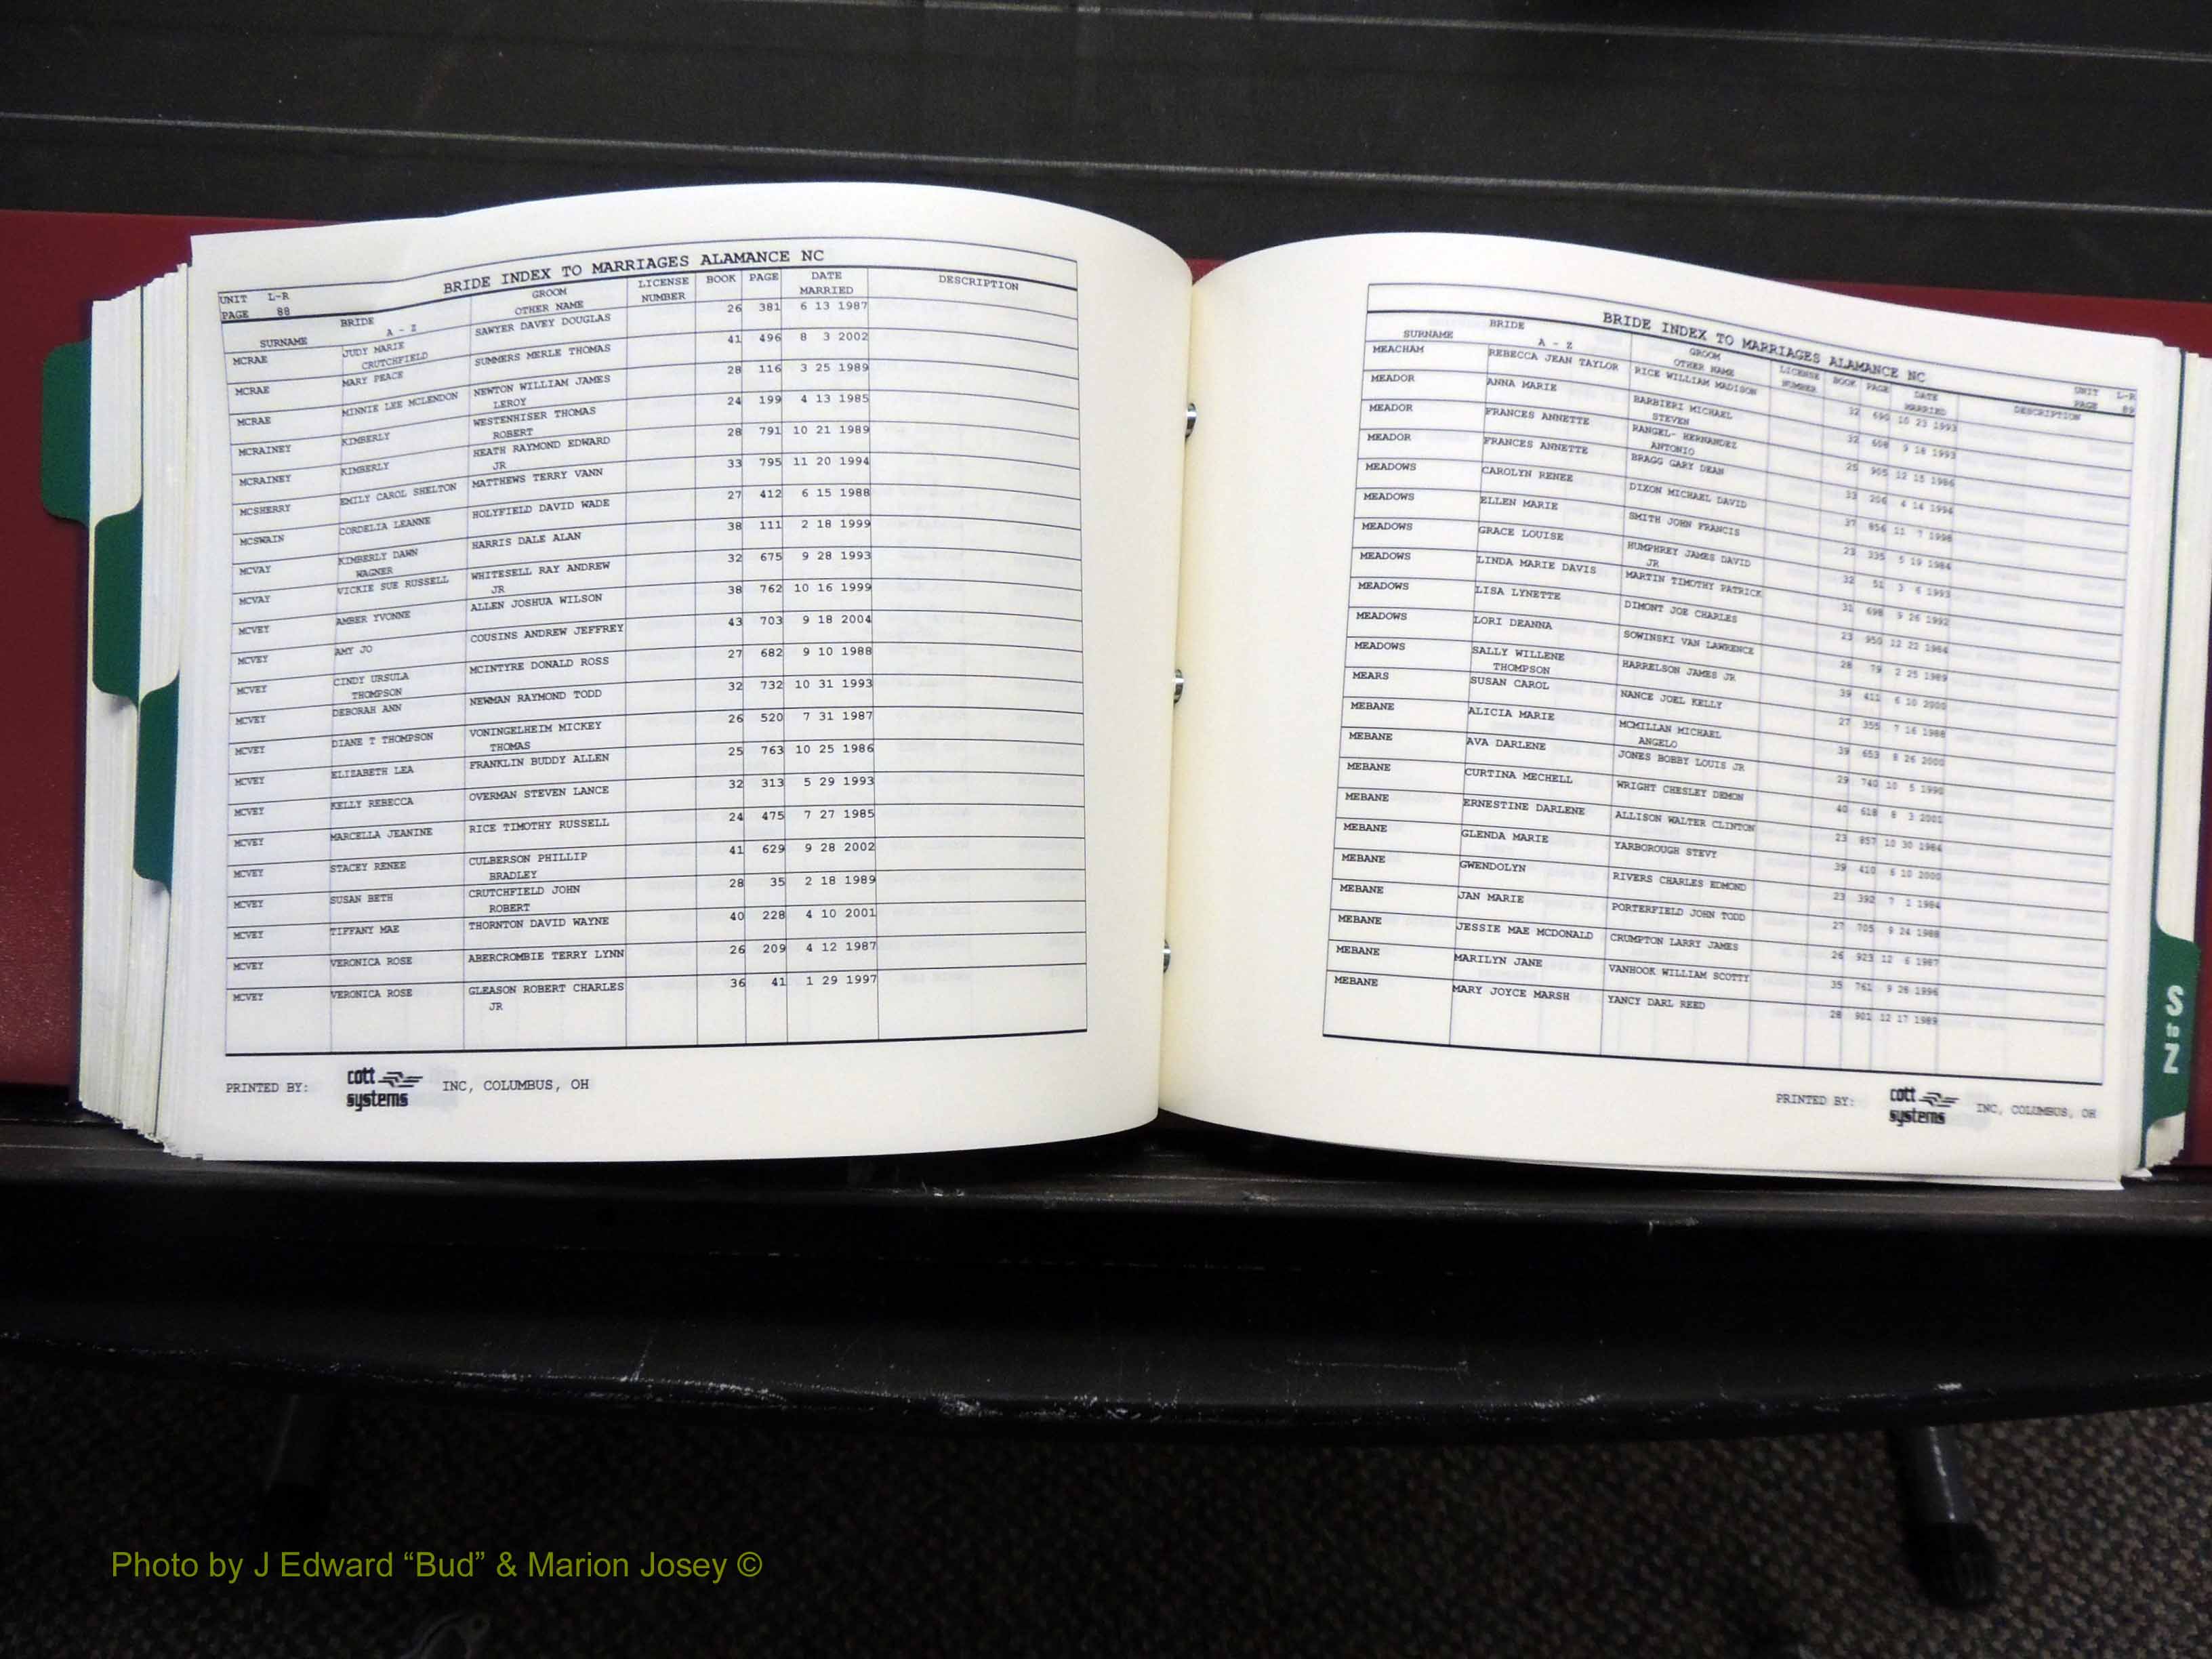 BRIDE INDEX TO MARRIAGES ALAMANCE NC
UNIT L-R
PAGE 88
SURNAME BRIDE A - Z GROOM OTHER NAME LICENSE NUMBER BOOK PAGE DATE MARRIED DESCRIPTION
MCRAE JUDY MARIE CRUTCHFIELD SAWYER DAVEY DOUGLAS 26 381 6 13 1987
MCRAE MARY PEACE SUMMERS MERLE THOMAS 41 496 8 3 2002
MCRAE MINNIE LEE MCLENDON NEWTON WILLIAM JAMES LEROY 28 116 3 25 1989
MCRAINEY KIMBERLY WESTENHISER THOMAS ROBERT 24 199 4 13 1985
MCRAINEY KIMBERLY HEATH RAYMOND EDWARD JR 28 791 10 21 1989
MCSHERRY EMILY CAROL SHELTON MATTHEWS TERRY VANN 33 795 11 20 1994
MCSWAIN CORDELIA LEANNE HOLYFIELD DAVID WADE 27 412 6 15 1988
MCVAY KIMBERLY DAWN WAGNER HARRIS DALE ALAN 38 111 2 18 1999
MCVAY VICKIE SUE RUSSELL WHITESELL RAY ANDREW JR 32 675 9 28 1993
MCVEY AMBER YVONNE ALLEN JOSHUA WILSON 38 762 10 16 1999
MCVEY AMY JO COUSINS ANDREW JEFFREY 43 703 9 18 2004
MCVEY CINDY URSULA THOMPSON MCINTYRE DONALD ROSS 27 682 9 10 1988
MCVEY DEBORAH ANN NEWMAN RAYMOND TODD 32 732 10 31 1993
MCVEY DIANE T THOMPSON VONINGELHEIM MICKEY THOMAS 26 520 7 31 1987
MCVEY ELIZABETH LEA FRANKLIN BUDDY ALLEN 25 763 10 25 1986
MCVEY KELLY REBECCA OVERMAN STEVEN LANCE 32 313 5 29 1993
MCVEY MARCELLA JEANINE RICE TIMOTHY RUSSELL 24 475 7 27 1985
MCVEY STACEY RENEE CULBERSON PHILLIP BRADLEY 41 629 9 28 2002
MCVEY SUSAN BETH CRUTCHFIELD JOHN ROBERT 28 35 2 18 1989
MCVEY TIFFANY MAE THORNTON DAVID WAYNE 40 228 4 10 2001
MCVEY VERONICA ROSE ABERCROMBIE TERRY LYNN 26 209 4 12 1987
MCVEY VERONICA ROSE GLEASON ROBERT CHARLES JR 36 41 1 29 1997
PRINTED BY: cott systems INC, COLUMBUS, OH
BRIDE INDEX TO MARRIAGES ALAMANCE NC
UNIT L-R
PAGE 89
SURNAME BRIDE A - Z GROOM OTHER NAME LICENSE NUMBER BOOK PAGE DATE MARRIED DESCRIPTION
MEACHAM REBECCA JEAN TAYLOR RICE WILLIAM MADISON 32 690 10 23 1993
MEADOR ANNA MARIE BARBIERI MICHAEL STEVEN 32 608 9 18 1993
MEADOR FRANCES ANNETTE RANGEL- HERNANDEZ ANTONIO 25 905 12 15 1986
MEADOR FRANCES ANNETTE BRAGG GARY DEAN 33 206 4 14 1994
MEADOWS CAROLYN RENEE DIXON MICHAEL DAVID 37 856 11 7 1998
MEADOWS ELLEN MARIE SMITH JOHN FRANCIS 23 335 5 19 1984
MEADOWS GRACE LOUISE HUMPHREY JAMES DAVID JR 32 51 3 6 1993
MEADOWS LINDA MARIE DAVIS MARTIN TIMOTHY PATRICK 31 698 9 26 1992
MEADOWS LISA LYNETTE DIMONT JOE CHARLES 23 950 12 22 1984
MEADOWS LORI DEANNA SOWINSKI VAN LAWRENCE 28 79 2 25 1989
MEADOWS SALLY WILLENE THOMPSON HARRELSON JAMES JR 39 411 6 10 2000
MEARS SUSAN CAROL NANCE JOEL KELLY 27 355 7 16 1988
MEBANE ALICIA MARIE MCMILLAN MICHAEL ANGELO 39 653 8 26 2000
MEBANE AVA DARLENE JONES BOBBY LOUIS JR 29 740 10 5 1990
MEBANE CURTINA MECHELL WRIGHT CHESLEY DEMON 40 618 8 3 2001
MEBANE ERNESTINE DARLENE ALLISON WALTER CLINTON 23 857 10 30 1984
MEBANE GLENDA MARIE YARBOROUGH STEVY 39 410 6 10 2000
MEBANE GWENDOLYN RIVERS CHARLES EDMOND 23 392 7 1 1984
MEBANE JAN MARIE PORTERFIELD JOHN TODD 27 705 9 24 1988
MEBANE JESSIE MAE MCDONALD CRUMPTON LARRY JAMES 26 923 12 6 1987
MEBANE MARILYN JANE VANHOOK WILLIAM SCOTTY 35 761 9 28 1996
MEBANE MARY JOYCE MARSH YANCY DARL REED 28 901 12 17 1989
PRINTED BY: cott systems INC, COLUMBUS, OH
S to Z
Photo by J Edward “Bud” & Marion Josey ©